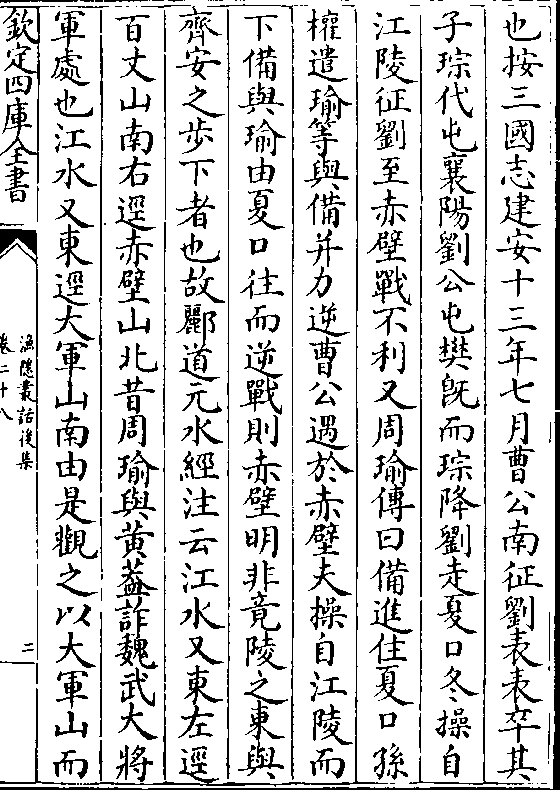 也按三國志建安十三年七月曹公南征劉表表卒其
子琮代屯襄陽劉公屯樊旣而琮降劉走夏口冬操自
江陵征劉至赤壁戰不利又周瑜傳曰備進住夏口孫
權遣瑜等與備并力逆曹公遇於赤壁夫操自江陵而
下備與瑜由夏口往而逆戰則赤壁明非竟陵之東與
齊安之步下者也故酈道元水經注云江水又東左逕
百丈山南右逕赤壁山北昔周瑜與黄葢詐魏武大將
軍處也江水又東逕大軍山南由是觀之以大軍山而
欽定四庫全書
漁隱叢話後集
卷二十八
二